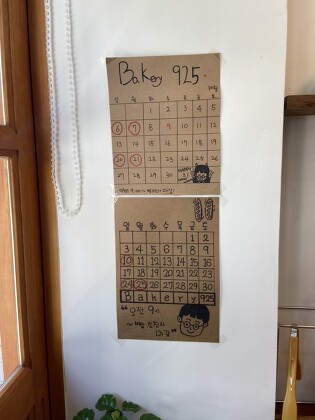 Bakery 925
10월
일 월 화 수 목 금 토
1 2 3 4 5
6 7 8 9 10 11 12
13 14 15 16 17 18 19
20 21 22 23 24 25 26
27 28 29 30
일 월 화 수 목 금 토
1 2
3 4 5 6 7 8 9
10 11 12 13 14 15 16
17 18 19 20 21 22 23
24 25 26 27 28 29 30
Bakery 925
"오전 9시
~ 빵 소진시
까지"